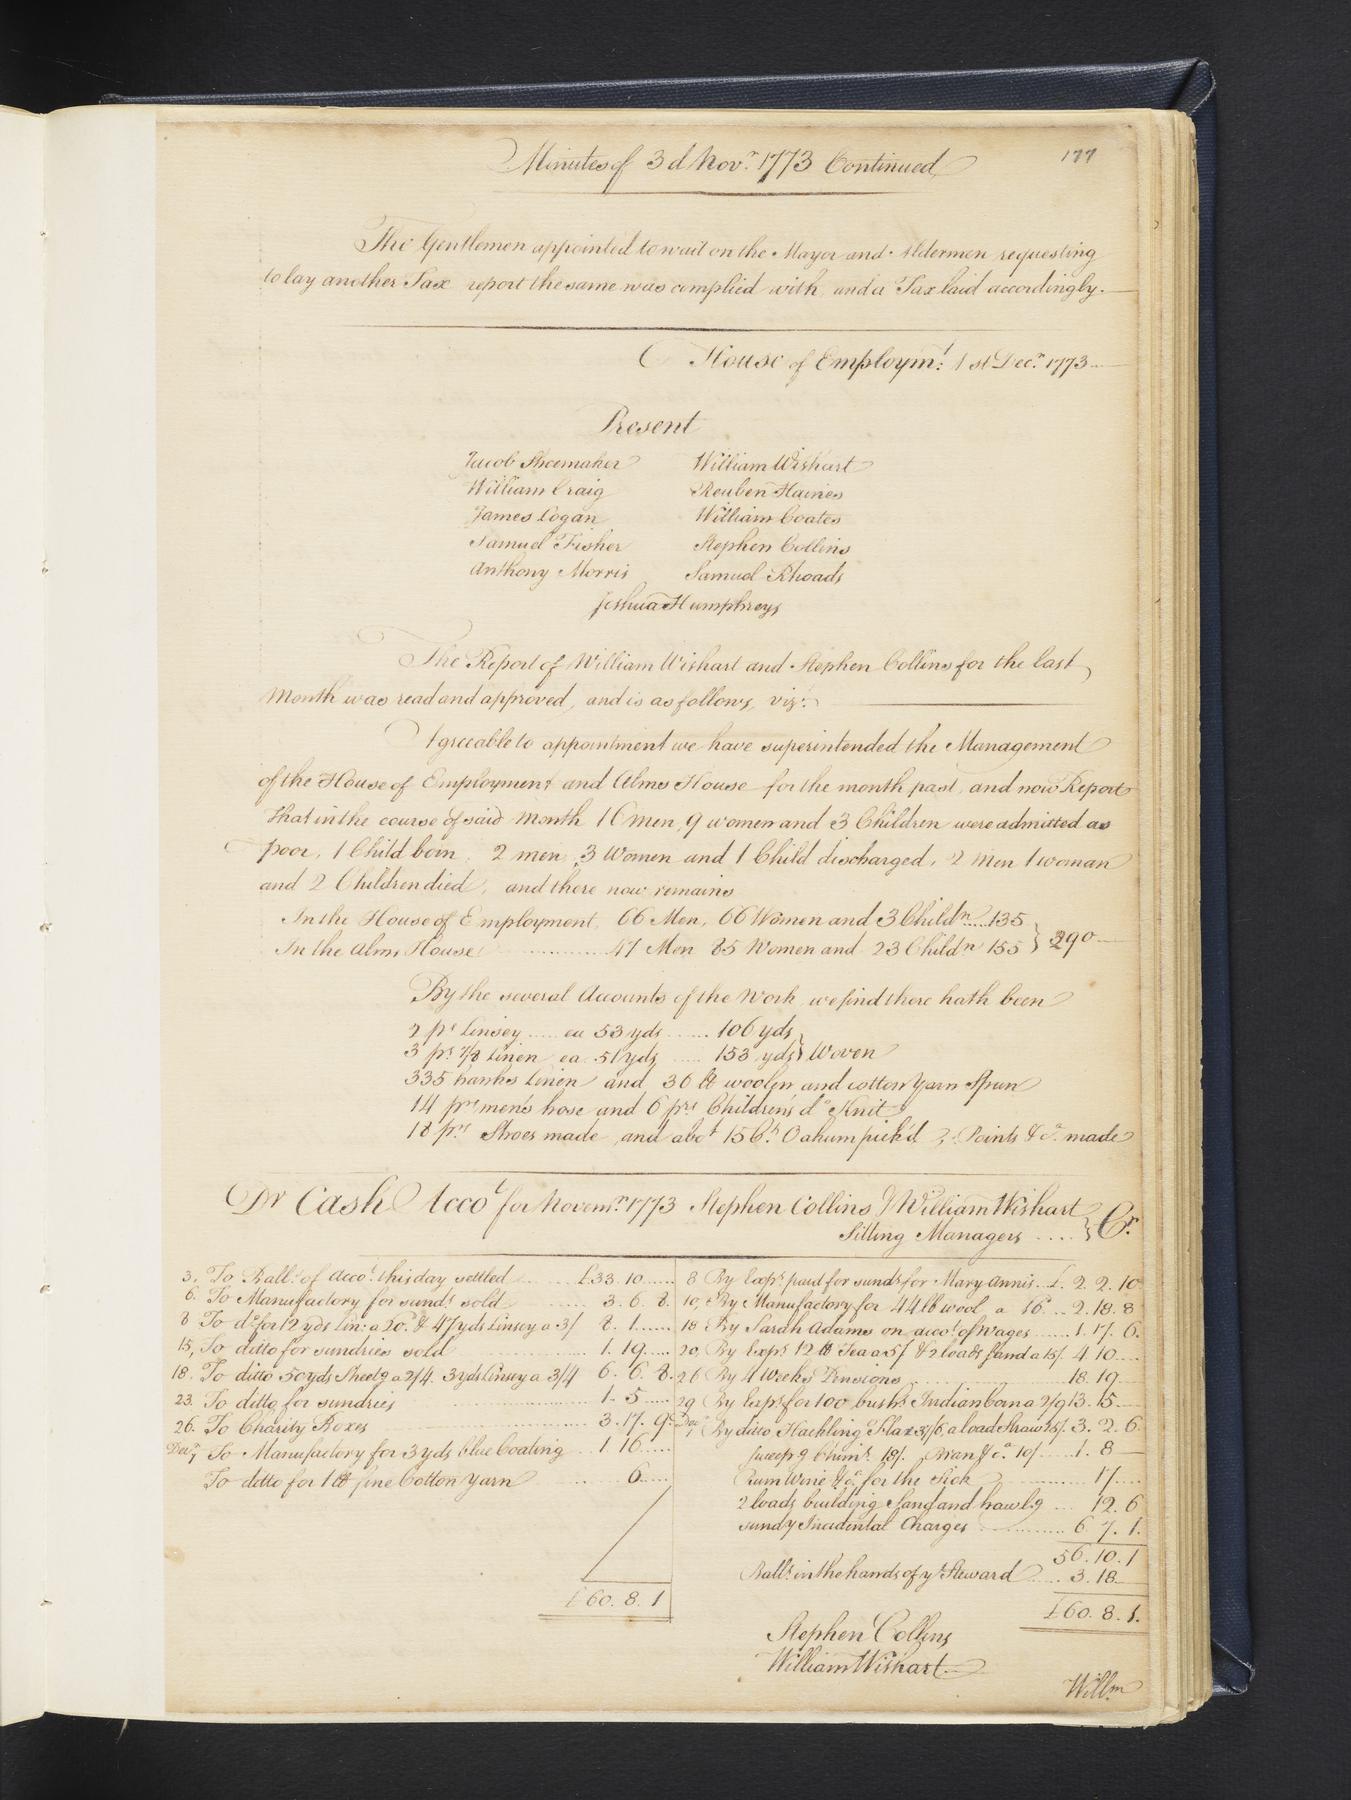 Minutes of 3d Novr. 1773 Continued
177
The Gentlemen appointed to wait on the Mayor and Aldermen requesting
to lay another Tax report the same was complied with and a Tax laid accordingly.
House of Employmt: 1st Decr. 1773
Present
Jacob Shoemaker William Wishart
William Craig Reuben Haines
James Logan William Coates
Samuel Fisher Stephen Collins
Anthony Morris Samuel Rhoads
Joshua Humphreys
The Report of William Wishart and Stephen Collins for the last
Month was read and approved, and is as follows, vizt:
Agreeable to appointment we have superintended the Management
of the House of Employment and Alms House for the month past, and now Report
that in the course of said month 16 men, 9 women and 3 Children were admitted as
poor, 1 Child born, 2 men, 3 Women and 1 Child discharged, 2 men 1 woman
and 2 Children died, and there now remains
In the House of Employment, 66 Men, 66 Women and 3 Childn ..... 135
In the Alms House ............ 47 Men 85 Women and 23 Childn 155 } 290
By the several Accounts of the Work, we find there hath been
2 ps Linsey ..... ea 53 yds ...... 106 yds
3 ps 7/8 Linen ea. 51 yds ..... 153 yds } Woven
335 hanks Linen and 36 lb woolen and cotton Yarn Spun
14 prs mens hose and 6 prs Children's do Knit
18 prs Shoes made and abot 156 lb Oakum pick'd Points &ca. made
Dr Cash Accot for Novemr. 1773 Stephen Collins & William Wishart
Sitting Managers .... } Cr.
3, To Ballce of Accot. this day settled ..... £33. 10 .....
6. To Manufactory for sunds sold ...... 3. 6. 8.
8 To do for 12 yds Lin: a 20d. & 47 yds Linsey a 3/ 8. 1 .....
15, To ditto for sundries sold ..... 1. 19 ....
18. To ditto 50 yds Sheetg a 2/4. 3 yds Linsey a 3/4 6. 6. 8.
23. To ditto for sundries ..... 1. 5 ....
26. To Charity Boxes ..... 3. 17. 9
Decr. 1 To Manufactory for 3 yds blue Coating .. 1 16 ....
To ditto for 1 lb fine Cotton Yarn ..... 6 ....
£60. 8. 1
8 By Exps. paid for sunds for Mary Annis. £. 2. 2. 10
10, By Manufactory for 44 lb wool a 16d. .. 2. 18. 8
18 By Sarah Adams on accot of Wages ..... 1. 17. 6.
20, By Exps 12 lb Tea a 5/ & 2 loads sand a 15/. 4. 10 ....
26 By 4 Weeks Pensions ..... 18. 19
29 By Exps for 100 bushs Indian Corn a 2/9 13. 15
Decr. 1 By ditto Hackling Flax 31/6, a load Straw 15/. 3. 2. 6
sweepg Chims. 18/. Bran &ca. 10/ ..... 1. 8
Rum Wine &c. for the Sick ..... 17 ....
2 loads building Sand and hawlg ... 12. 6
sundy Incidental Charges ..... 6. 7. 1.
56. 10. 1
Ballce in the hands of ye Steward ..... 3. 18
£60. 8. 1.
Stephen Collins
William Wishart
Willm